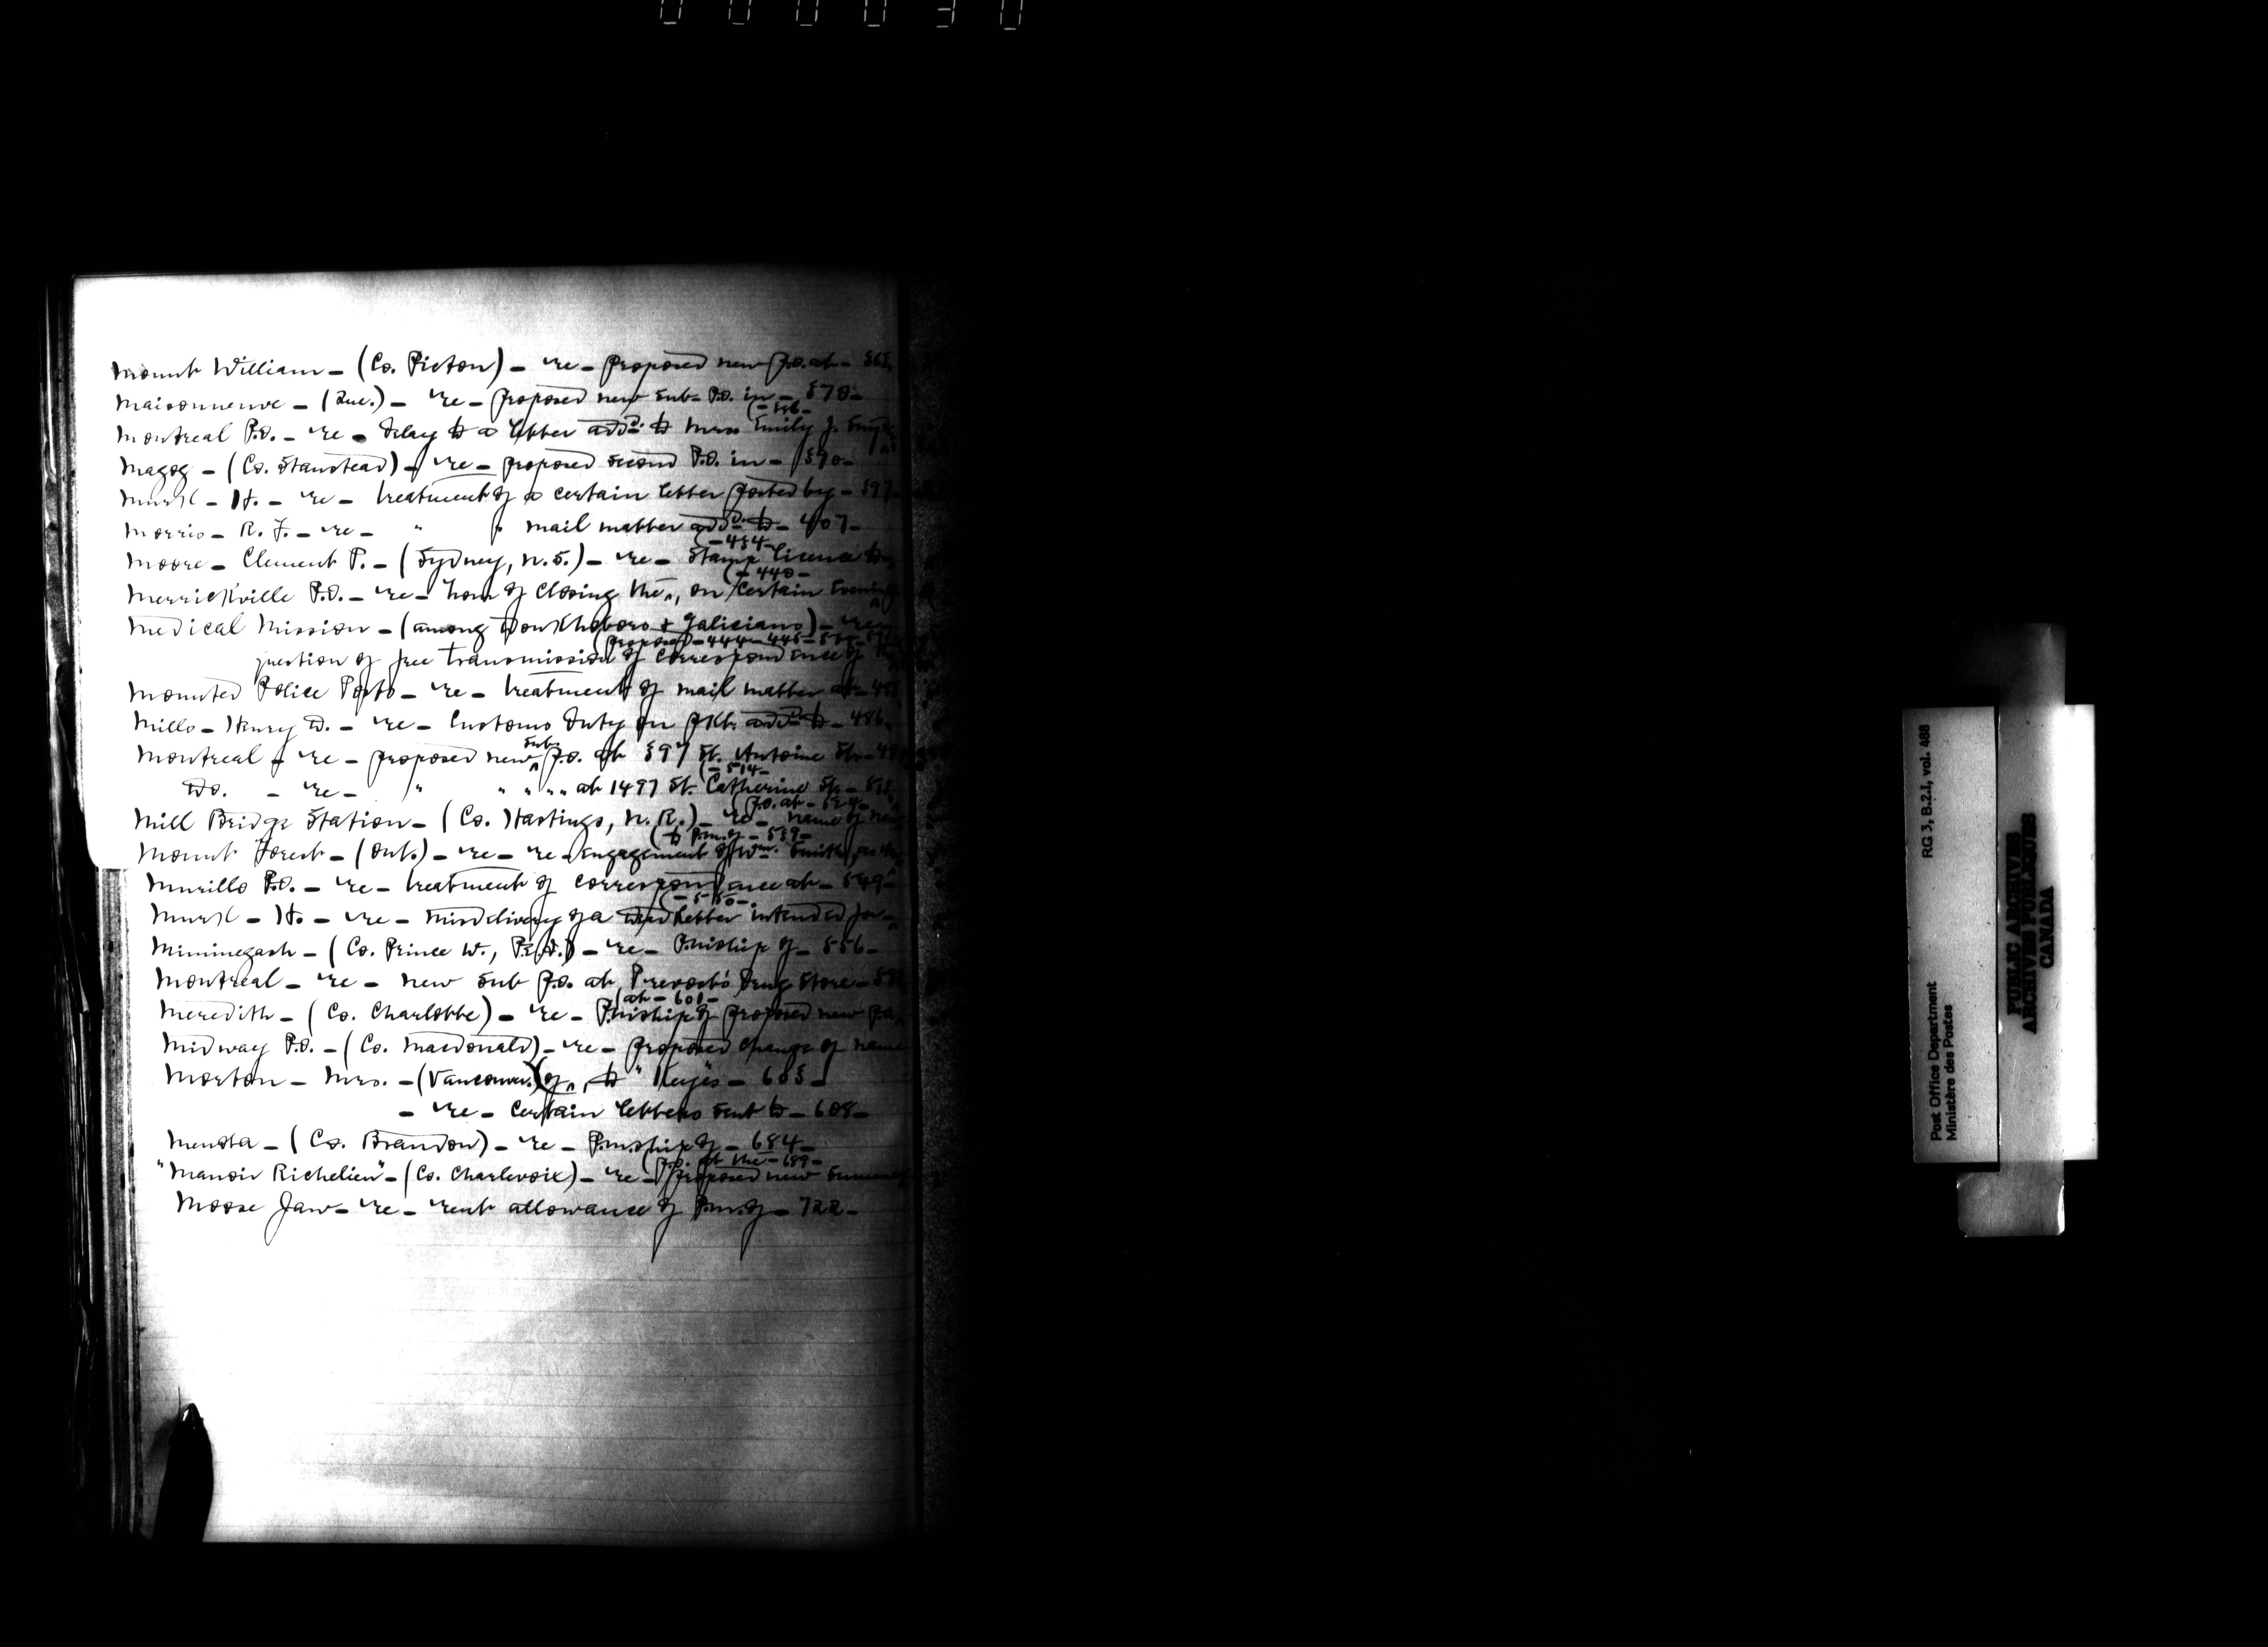 Mount William - (Co. Pictou) - re - proposed new P.O. at - 365
Maisonneuve - (Que.) - re - proposed new sub-P.O. in - 378 -
(- 386 -
Montreal P.O. - re - delay to a letter add'd. to Mrs. Emily J.
Magog - (Co. Stanstead) - re - proposed second P.O. in - 390 -
Mursk - H. - re - treatment of a certain letter posted by - 397
Morris - R. F. - re - " " mail matter add'd. to - 407 -
(- 434 -
Moore - Clement P. - (Sydney, N.S.) - re - Stamp licence to
(- 440 -
Merrickville P.O. - re - hour of closing the, on certain
Medical Mission - (among Doukhobors & Galicians) - re -
(proposed - 444 - 445 -
question of free transmission of correspondence of
Mounted Police Posts - re - treatment of mail matter at -
Mills - Henry D. - re - Customs duty on pkt. add'd. to - 486 -
sub-
Montreal - re - proposed new P.O. at 397 St. Antoine St. -
(- 514 -
Do. - re - " " " " at 1497 St. Catherine St. -
(P.O. at - 524 -
Mill Bridge Station - (Co. Hastings, N.R.) - re - name of new
(to P.m. of - 539 -
Mount Forest - (Ont.) - re - re-engagement of Wm. Smith, as
Murillo P.O. - re - treatment of correspondence at - 549 -
(- 550 -
Mursk - H. - re - misdelivery of a dead letter intended for -
Miminegash - (Co. Prince W., P.E.I.) - re - P.m.ship of - 556 -
Montreal - re - new sub P.O. at Prevost's Drug Store -
(at - 601 -
Meredith - (Co. Charlotte) - re - P.m.ship of proposed new P.O.
Midway P.O. - (Co. Macdonald) - re - proposed change of name
Morton - Mrs. - (Vancouver) (of, to "Keyes - 603 -
- re - certain letters sent to - 608 -
Menota - (Co. Brandon) - re - P.m.ship of - 684 -
(P.O. at the - 689 -
"Manoir Richelieu" - (Co. Charlevoix) - re - proposed new summer
Moose Jaw - re - rent allowance of P.m. of - 722 -
RG 3, B.2.I, vol. 488
Post Office Department
Ministère des Postes
PUBLIC ARCHIVES
ARCHIVES PUBLIQUES
CANADA